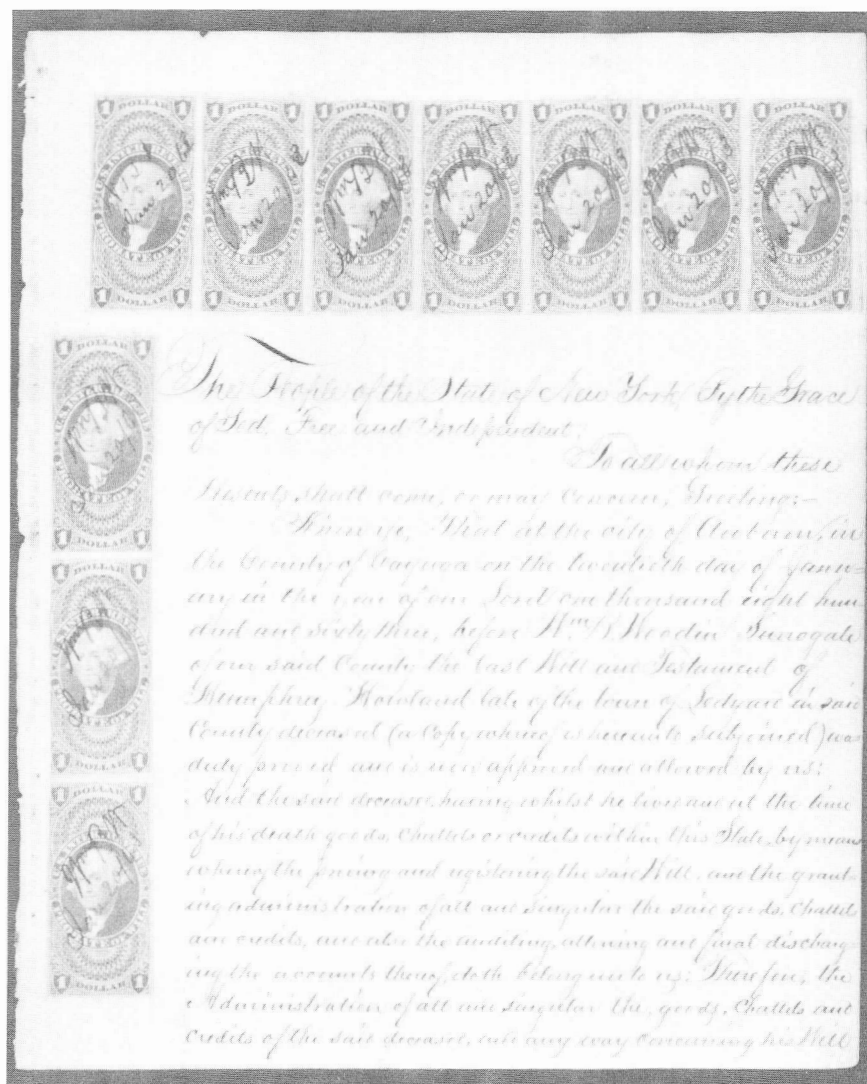 1 DOLLAR 1 1 DOLLAR 1 1 DOLLAR 1 1 DOLLAR 1 1 DOLLAR 1 1 DOLLAR 1 1 DOLLAR 1
Jan 20 Jan 20 Jan 20 Jan 20 Jan 20 Jan 20 Jan 20
1 DOLLAR 1 1 DOLLAR 1 1 DOLLAR 1 1 DOLLAR 1 1 DOLLAR 1 1 DOLLAR 1 1 DOLLAR 1
1 DOLLAR 1
1 DOLLAR 1
1 DOLLAR 1
1 DOLLAR 1
1 DOLLAR 1
1 DOLLAR 1
The People of the State of New York, By the Grace
of God, Free and Independent.
To all whom these
Presents, shall come, or may Concern, Greeting:-
Know ye, That at the city of Auburn, in
the County of Cayuga on the twentieth day of Janu-
ary in the year of our Lord one thousand eight hun
dred and sixty three, before Wm Woodin Surrogate
of our said County the Last Will and Testament of
Humphrey Howland late of the town of Ledyard in said
County deceased (a Copy whereof is hereunto subjoined) was
duly proved and is now approved and allowed by us:
And the said deceased, having whilst he lived and at the time
of his death goods, Chattels or credits within this State, by means
whereof the proving and registering the said Will, and the grant-
ing administration of all and Singular the said goods, Chattels
and credits, and also the auditing, allowing and final discharg-
ing the accounts thereof, doth belong unto us: Therefore, the
Administration of all and singular the goods, Chattels and
Credits of the said deceased, and any way concerning his Will